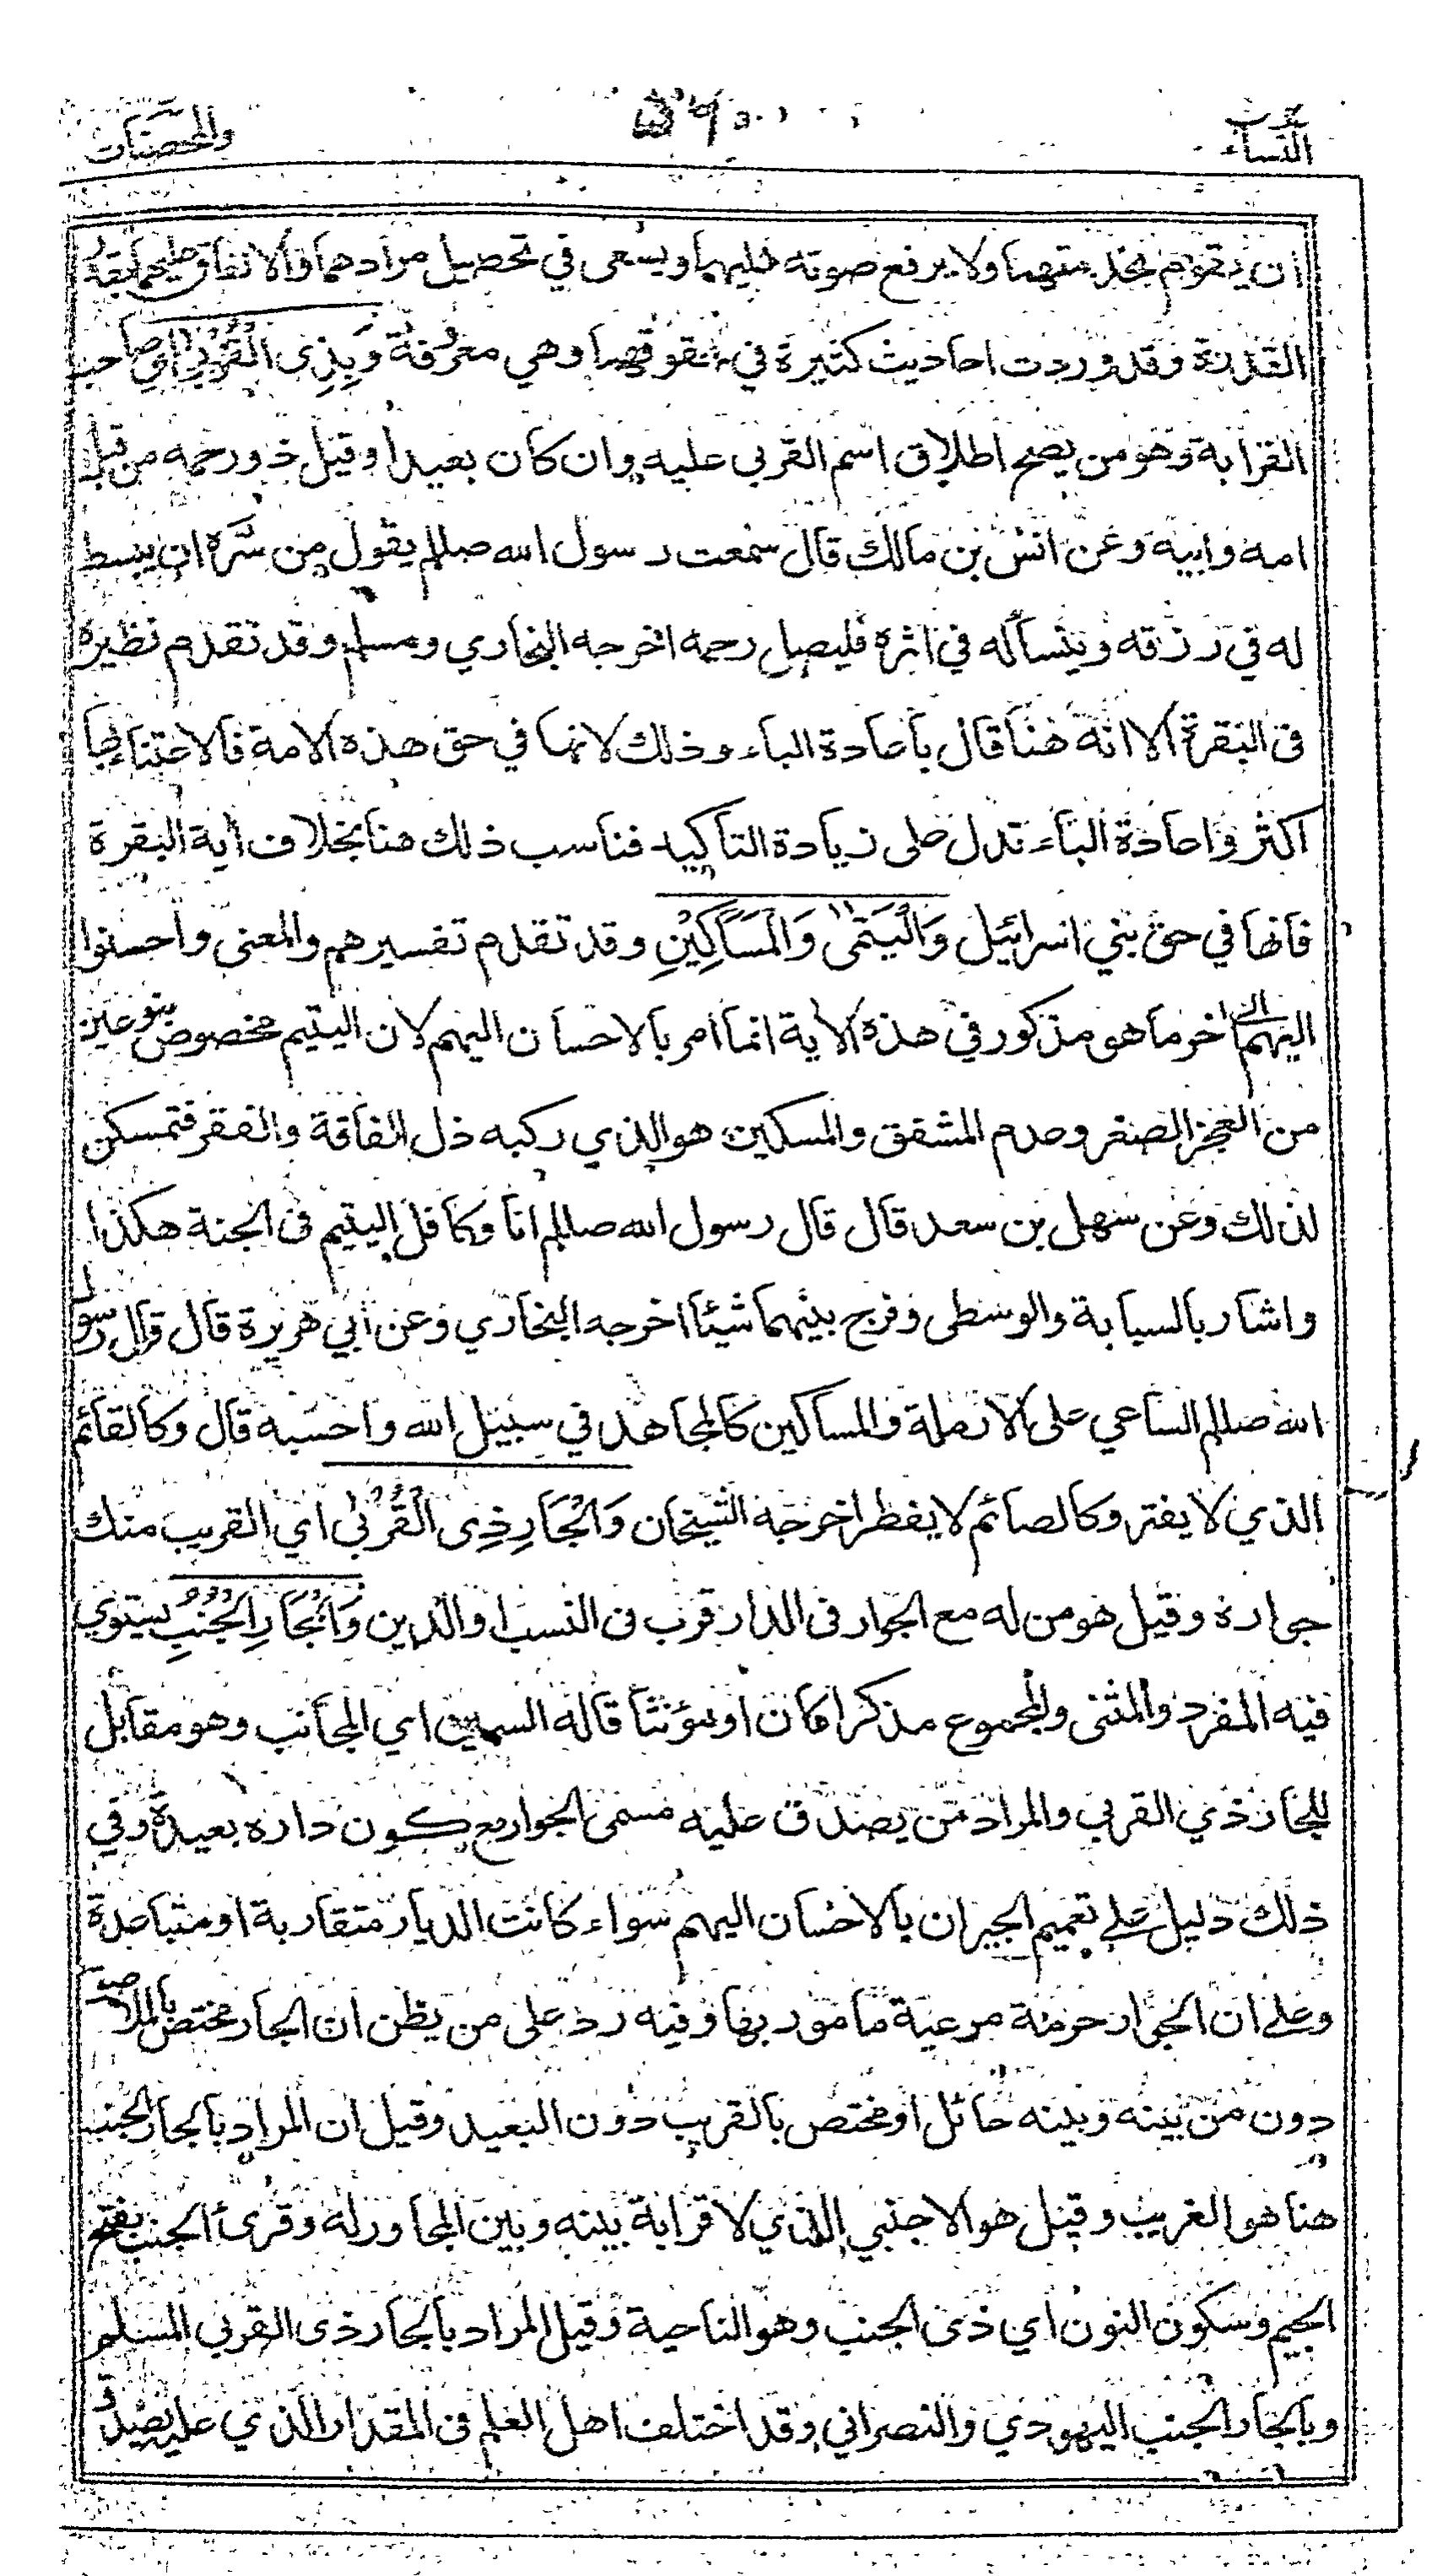 النساء
والمحصنات
ان يقوم بخدمتهما ولا يرفع صوته عليهما ويسعى في تحصيل مرادهما والانفاق عليهما بقدر
القدرة وقد وردت احاديث كثيرة في حقوقهما وهي معروفة وَبِذِي الْقُرْبٰى اي صاحب
القرابة وهو من يصح اطلاق اسم القربى عليه وان كان بعيدا وقيل ذو رحمه من قبل
امه وابيه وعن انس بن مالك قال سمعت رسول الله صللم يقول من سره ان يبسط
له في رزقه وينسأ له في اثره فليصل رحمه اخرجه البخاري ومسلم وقد تقدم نظيره
في البقرة الا انه هنا قال باعادة الباء وذلك لانها في حق هذه الامة فالاعتناء بها
اكثر واعادة الباء تدل على زيادة التاكيد فناسب ذلك هنا بخلاف أية البقرة
فانها في حق بني اسرائيل وَالْيَتٰمٰى وَالْمَسَاكِيْنِ وقد تقدم تفسيرهم والمعنى واحسنوا
اليهم الى اخر ما هو مذكور في هذه الاية انما امر بالاحسان اليهم لان اليتيم مخصوص بنوعين
من العجز الصغر وعدم المشفق والمسكين هو الذي ركبه ذل الفاقة والفقر فتمسكن
لذلك وعن سهل بن سعد قال قال رسول الله صللم انا وكافل اليتيم في الجنة هكذا
واشار بالسبابة والوسطى وفرج بينهما شيئا اخرجه البخاري وعن أبي هريرة قال قال رسول
الله صللم الساعي على الارملة والمساكين كالمجاهد في سبيل الله واحسبه قال وكالقائم
الذي لا يفتر وكالصائم لا يفطر اخرجه الشيخان وَالْجَارِ ذِى الْقُرْبٰى اي القريب منك
جواره وقيل هو من له مع الجوار في الدار قرب في النسب او الدين وَالْجَارِ الْجُنُبِ يستوي
فيه المفرد والمثنى والمجموع مذكرا كان او مؤنثا قاله السمين اي المجانب وهو مقابل
للجار ذي القربى والمراد من يصدق عليه مسمى الجوار مع كون داره بعيدة وفي
ذلك دليل على تعميم الجيران بالاحسان اليهم سواء كانت الديار متقاربة او متباعدة
وعلى ان الجوار حرمة مرعية مامور بها وفيه رد على من يظن ان الجار مختص بالملاصق
دون من بينه وبينه حائل او مختص بالقريب دون البعيد وقيل ان المراد بالجار الجنب
هنا هو الغريب وقيل هو الاجنبي الذي لا قرابة بينه وبين المجاور له وقرئ الجنب بفتح
الجيم وسكون النون اي ذي الجنب وهو الناحية وقيل المراد بالجار ذى القربى المسلم
وبالجار الجنب اليهودي والنصراني وقد اختلف اهل العلم في المقدار الذي عليه يصدق